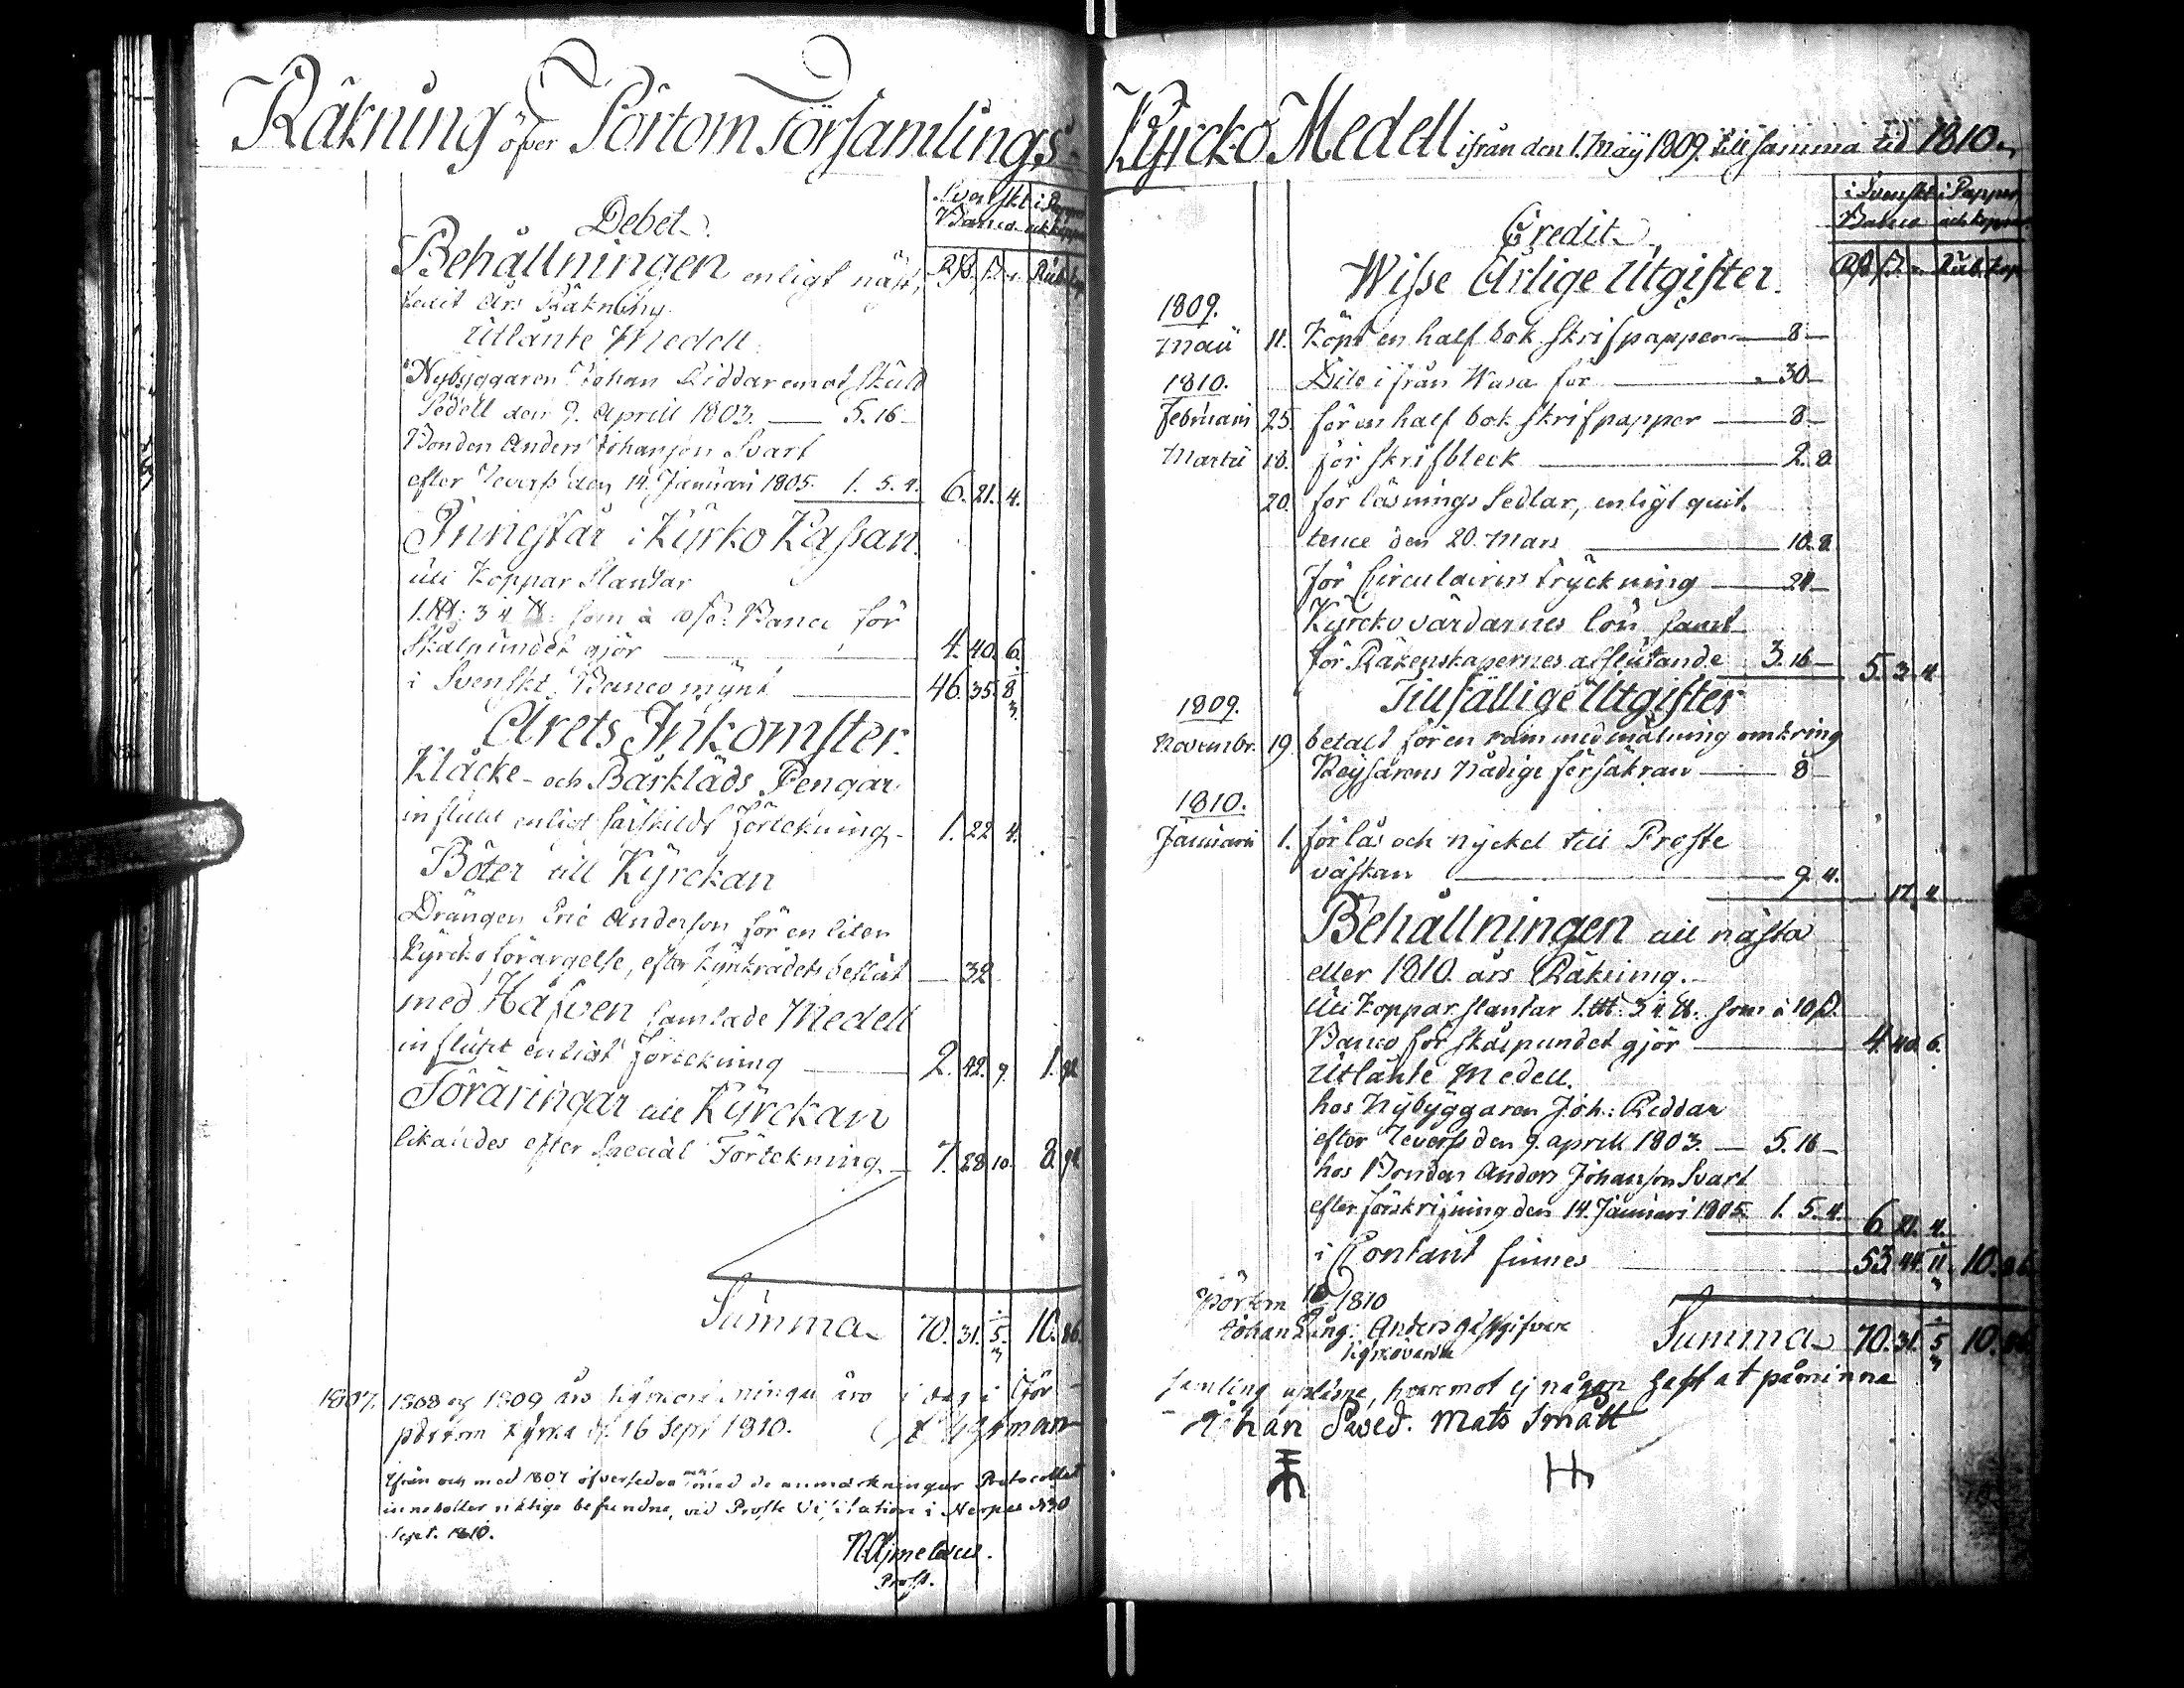 Räkning öfver Pörtom Församlings
Debet.
Svenskt i Papper
Banco och koppar
Rd. s. r. Rub. kop
Behållningen enligt näst-
ledit års Räkning
Utlånte Medell
Nybyggaren Johan Riddar emot skuld
Sedell den 9. Aprill 1803. — 5. 16 —
Bonden Anders Johanson Svart
efter Reverss den 14. Januari 1805. 1. 5. 4. 6. 21. 4.
Innestår i Kyrko Kassan.
uti Koppar Slantar
1. 3 som à 10 s. Banco för
Skålpundet gjör — 4. 40. 6.
i Svenskt Banco mynt — 46. 35. 8
Årets Inkomster.
Klåcke- och Bårkläds Pengar
influtit enligt särskildt förtekning — 1. 22 4.
Böter till Kyrckan
Drängen Eric Anderson för en liten
Kyrcko förargelse, efter kyrkrådets beslut — 32
med Håfven samlade Medell
influtit enligt förtekning — 2. 42. 9. 1. 92
Föräringar till Kyrckan
likaledes efter Special Förtekning. — 7. 28 10. 8. 94
Summa 70. 31. 5. 10. 86.
1807. 1808 och 1809 års äro i dag i för
pörtom kyrka d. 16 Sept 1810.
Ifrån och med 1807 öfversedde med de anmärkningar Protocollet
innehåller riktige befundne, vid Prosts Visitation i Nerpes d. 30
Sept. 1810.
N. Aymelæus.
Prost.
Kyrcko Medell ifrån den 1. Maÿ 1809. till samma tid 1810.
i Svenskt i Papper
Banco och koppar
Rd s. r. Rub. kop
Credit.
Wisse Årlige Utgifter.
1809.
Maii 11. Köpt en half bok skrifpapper — 8 —
1810. Dito ifrån Wasa för — 30 —
Februarii 25. för en half bok skrifpapper — 8 —
Martii 18. för skrifbleck — 2. 8.
20. för läsnings Sedlar, enligt quit-
tence den 20. Mars — 10. 8.
för Circulairers tryckning — 24 —
Kyrckovärdarnes lön samt
för Räkenskapernes afslutande 3. 16 — 5. 3. 4.
Tillfällige Utgifter
1809.
Novembr. 19. betalt för en ram med målning omkring
Keysarens Nådige försäkran — 8 —
1810.
Januarii 1. för lås och nyckel till Proste
väskan — 9. 4. 17. 4
Behållningen till nästa
eller 1810. års Räkning. —
Uti Koppar slantar 1. 3 som à 10 s.
Banco för skålpundet gjör — 4. 40. 6.
Utlånte Medell.
hos Nybyggaren Joh: Riddar
efter Reverss den 9. aprill 1803. — 5. 16 —
hos Bonden Anders Johanson Svart
efter förskrifning den 14. Januari 1805. 1. 5. 4. 6. 21. 4.
i Contant finnes — 53. 44. 11. 10. 86
Pörtom 1810
Johan Lång. Anders
kyrkovärdar
Summa 70. 31. 5 10. 86
samling upläsne, hvaremot ej någon haft at påminna
Johan Sved. Mats Smått